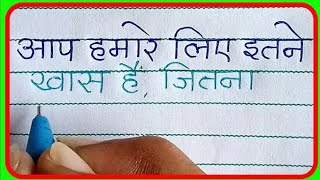 आप हमारे लिए इतने
खास हैं, जितना